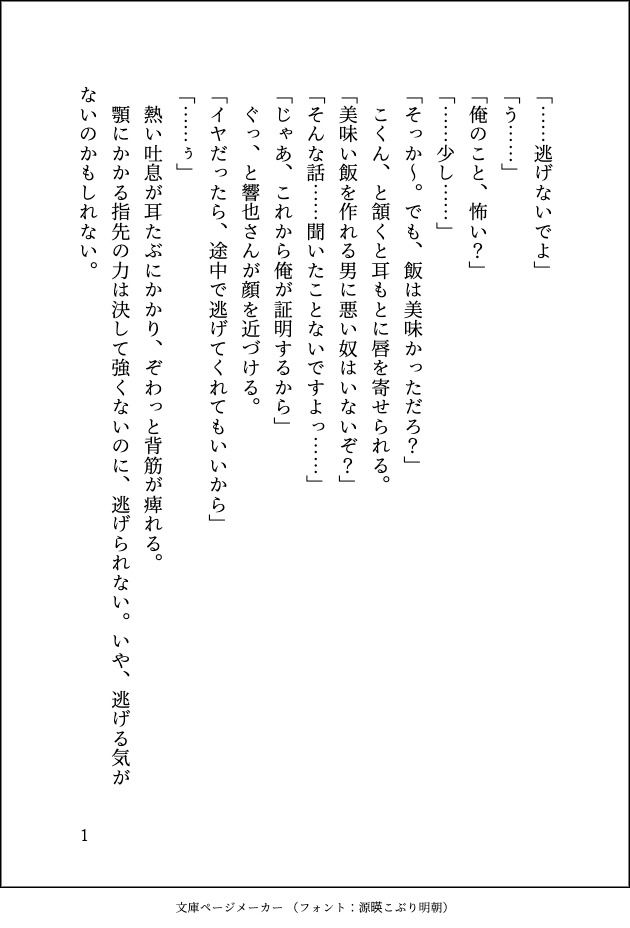 「……逃げないでよ」
「う……」
「俺のこと、怖い？」
「……少し……」
「そっか～。でも、飯は美味かっただろ？」
　こくん、と頷くと耳もとに唇を寄せられる。
「美味い飯を作れる男に悪い奴はいないぞ？」
「そんな話……聞いたことないですよっ……」
「じゃあ、これから俺が証明するから」
　ぐっ、と響也さんが顔を近づける。
「イヤだったら、途中で逃げてくれてもいいから」
「……ぅ」
　熱い吐息が耳たぶにかかり、ぞわっと背筋が痺れる。
　顎にかかる指先の力は決して強くないのに、逃げられない。いや、逃げる気が
ないのかもしれない。
1
文庫ページメーカー （フォント：源暎こぶり明朝）